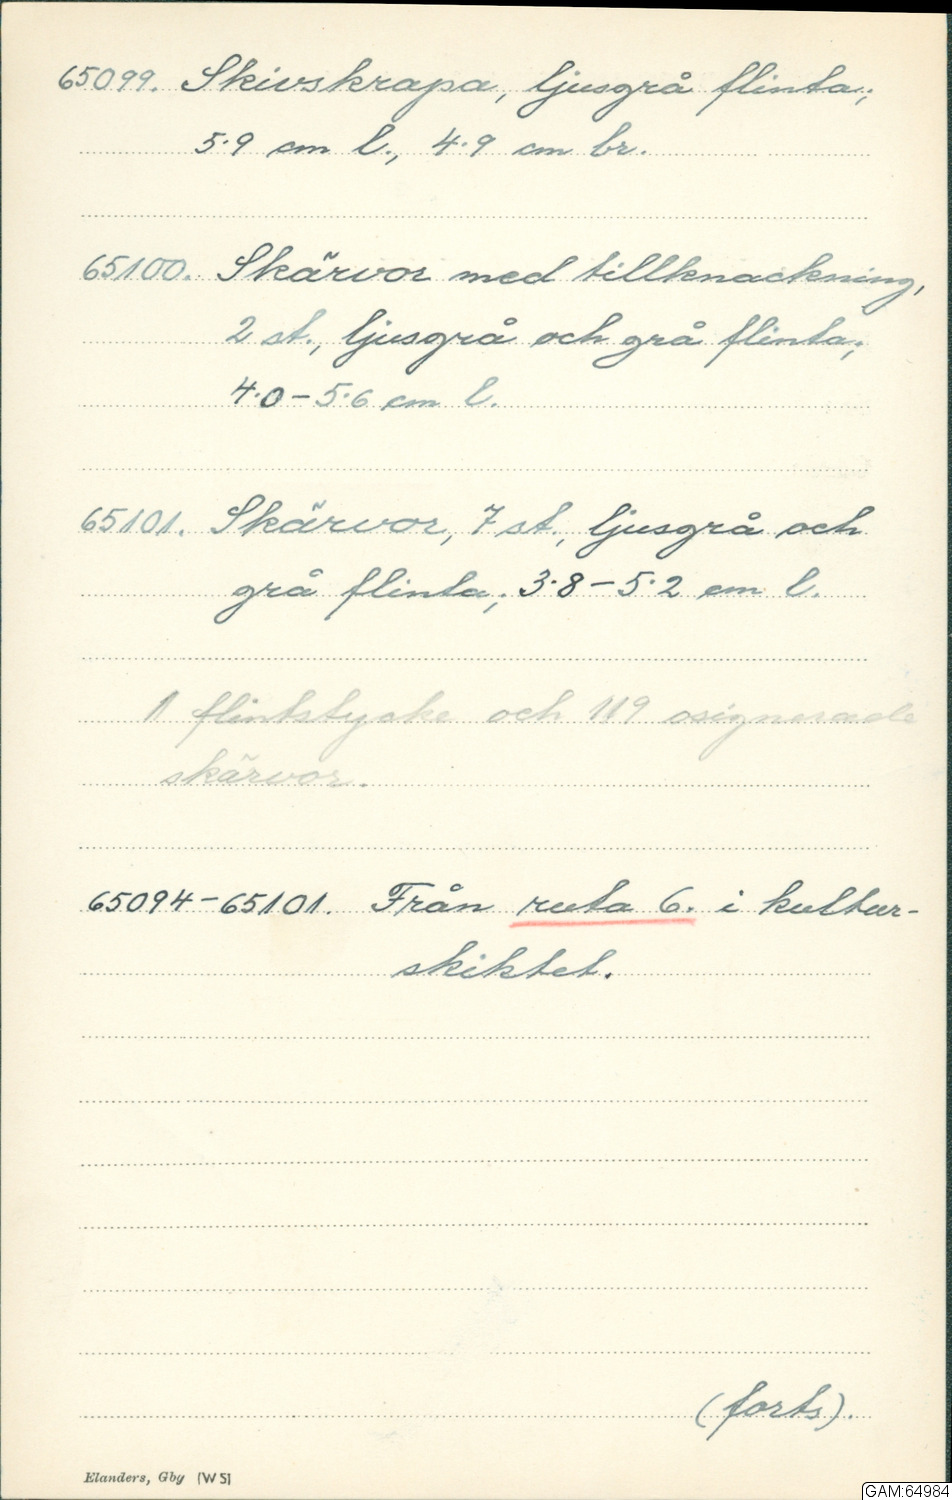 65099. Skivskrapa, ljusgrå flinta;
5.9 cm l., 4.9 cm br.
65100. Skärvor med tillknackning,
2 st., ljusgrå och grå flinta;
4.0-5.6 cm l.
65101. Skärvor, 7 st., ljusgrå och
grå flinta; 3.8-5.2 cm l.
1 flintstycke och 119 osignerade
skärvor.
65094-65101. Från ruta 6. i kultur-
skiktet.
(forts).
Elanders, Gby (WS)
GAM:64984